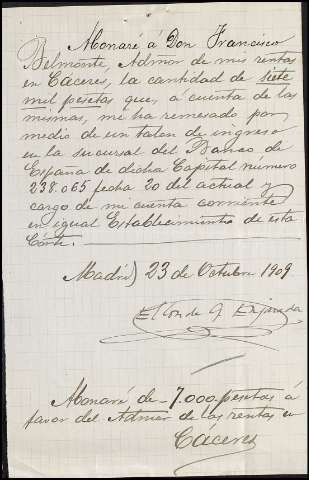 Abonaré á Don Francisco
Belmonte, Admor de mis rentas
en Cáceres, la cantidad de siete
mil pesetas que, á cuenta de las
mismas, me ha remesado por
medio de un talon de ingreso
en la sucursal del Banco de
España de dicha Capital número
238.065 fecha 20 del actual y
cargo de mi cuenta corriente
en igual Establecimiento de esta
Córte.
Madrid 23 de Octubre 1909
El Con de
Abonaré de 7.000 pesetas á
favor del Admor de las rentas en
Cáceres